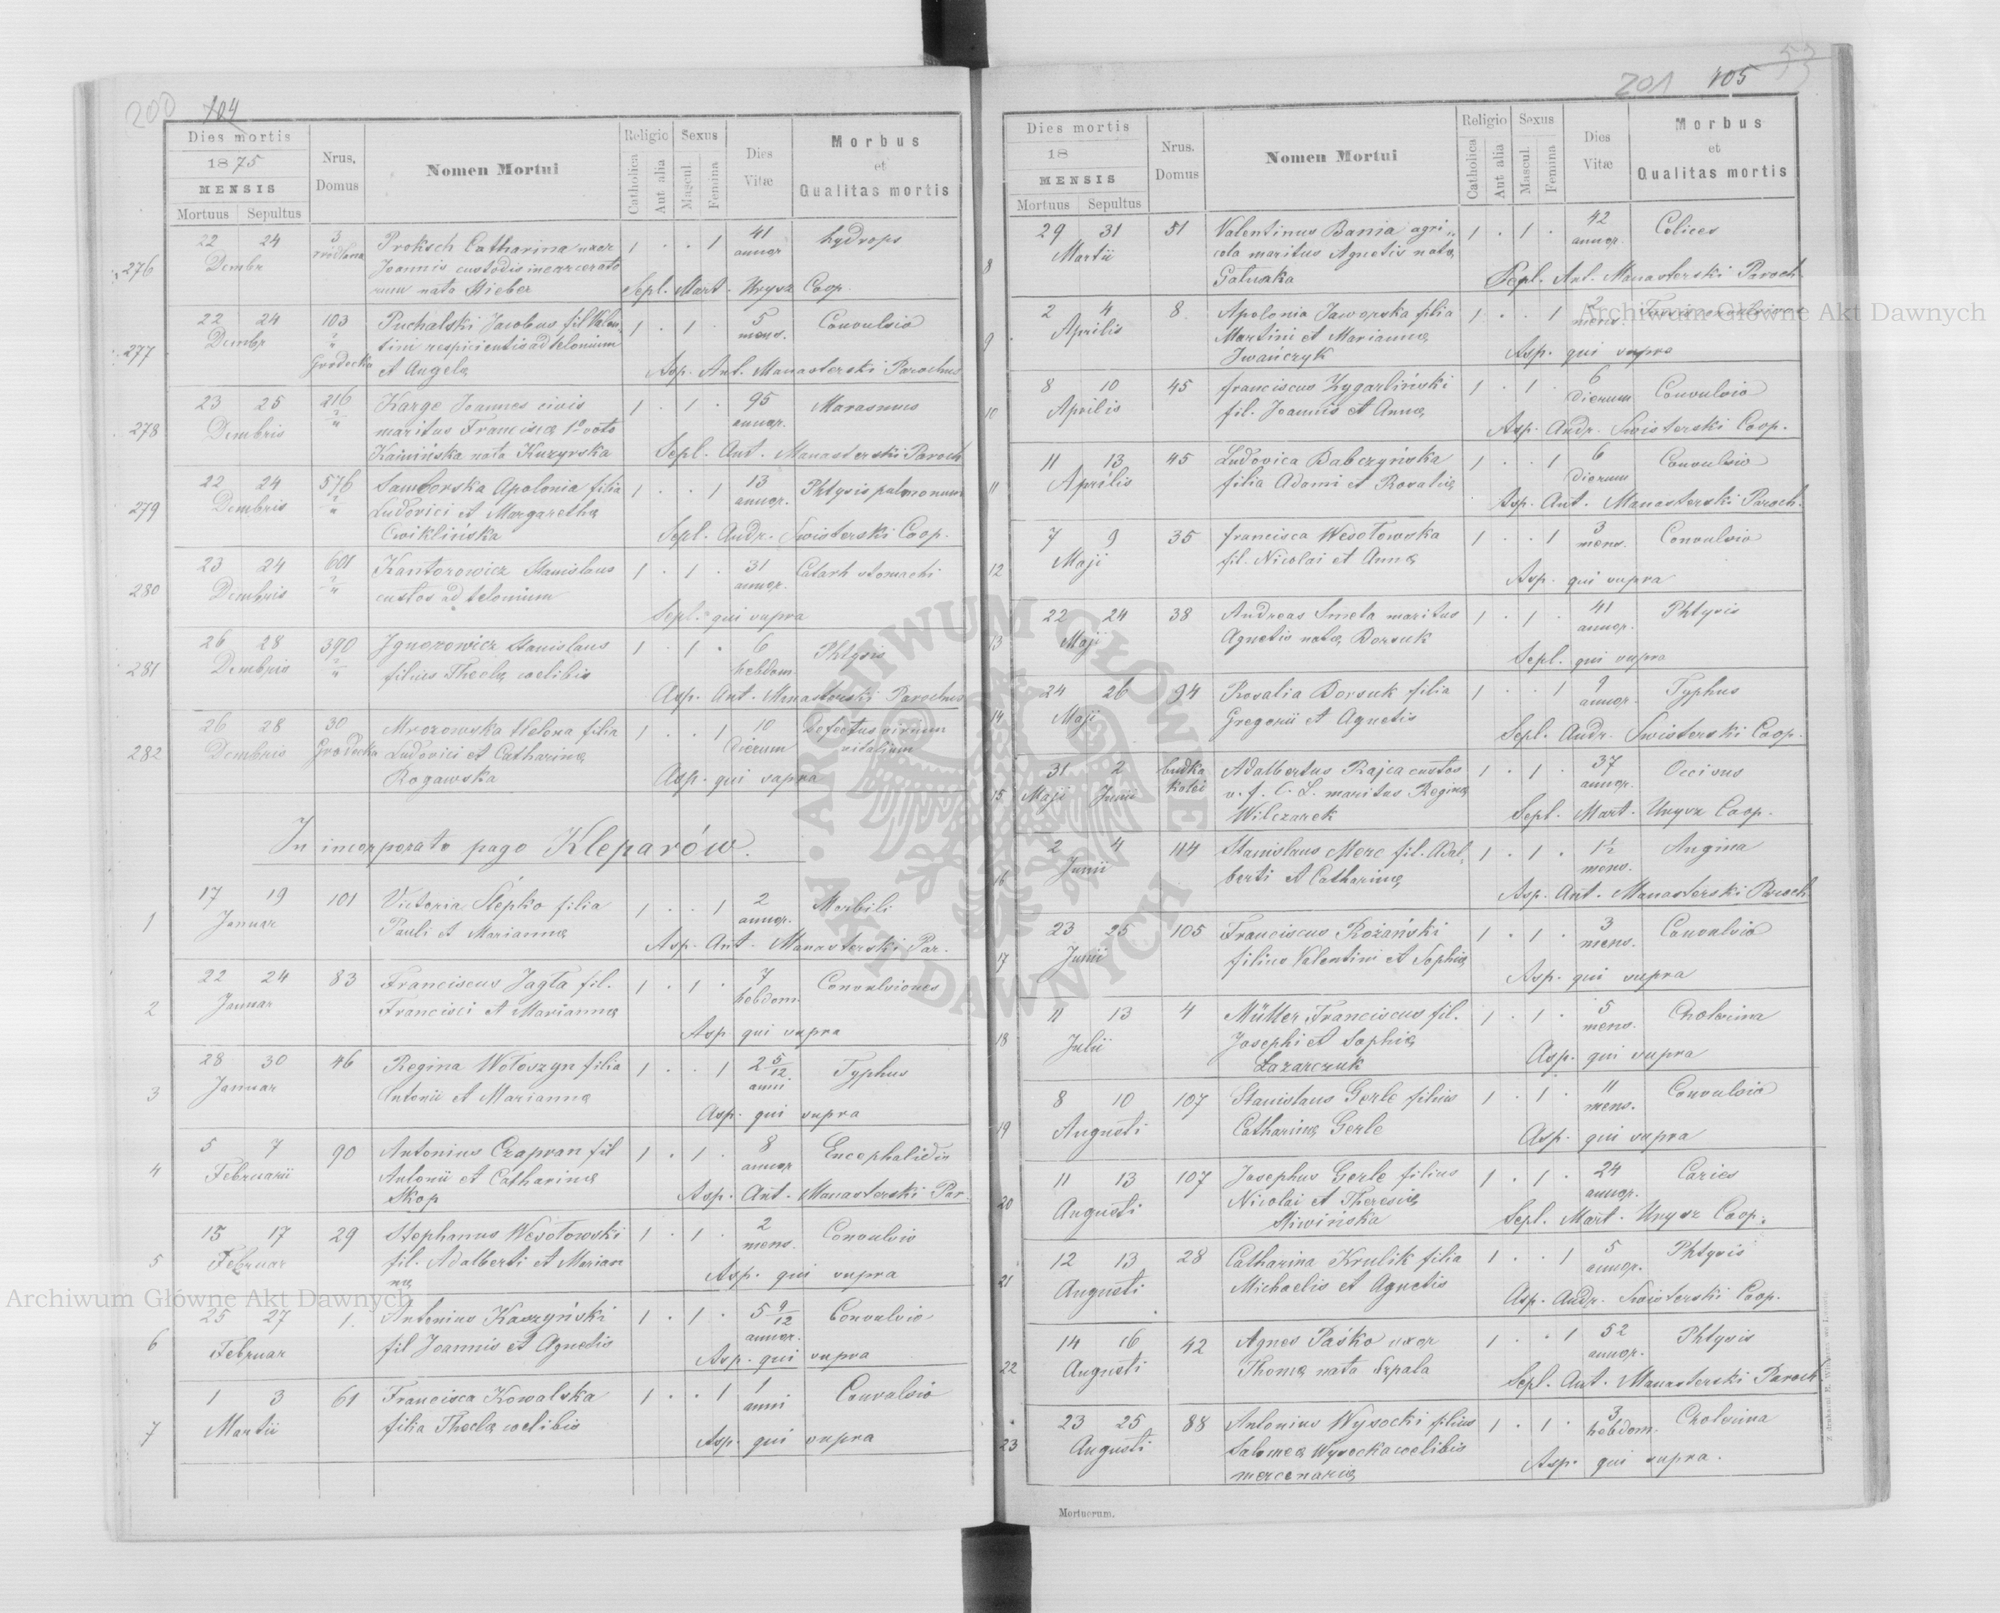 200 104
Dies mortis
1875
MENSIS
Mortuus Sepultus
Nrus. Domus
Nomen Mortui
Religio
Catholica
Aut alia
Sexus
Mascul.
Femina
Dies Vitæ
Morbus et Qualitas mortis
276 22 24 Dembr 3 Proksch Catharina uxor 1 . . 1 41 annor hydrops
Joannis custodis incarcerato
rum nata Hieber Sepl. Mart. Unysz Coop.
277 22 24 Dembr 103 Grodecka Puchalski Jacobus fil Valen 1 . 1 . 5 mens. Convulsio
tini respicientis ad telonium
et Angelæ Asp. Ant. Manasterski Parochus
278 23 25 Dembris 216 Karge Joannes civis 1 . 1 . 95 annor. Marasmus
maritus Franciscæ 1º voto
Kamińska nata Kuzyrska Sepl. Ant. Manasterski Paroch
279 22 24 Dembris 576 Samborska Apolonia filia 1 . . 1 13 annor. Phtysis pulmonum
Ludovici et Margarethæ
Cwiklińska Sepl. Andr. Swisterski Coop.
280 23 24 Dembris 601 Kantorowicz Stanislaus 1 . 1 . 31 annor. Catarh stomachi
custos ad telonium
Sepl. qui supra
281 26 28 Dembris 390 Ignorowicz Stanislaus 1 . 1 . 6 hebdom. Phtysis
filius Theclæ coelibis
Asp. Ant. Manasterski Parochus
282 26 28 Dembris 30 Grodecka Mrozowska Helena filia 1 . . 1 10 dierum Defectus virium vitalium
Ludovici et Catharinæ
Rogawska Asp. qui supra
In incorporato pago Kleparów.
1 17 19 Januar 101 Victoria Slepko filia 1 . . 1 2 annor. Morbili
Pauli et Mariannæ Asp. Ant. Manasterski Par.
2 22 24 Januar 83 Franciscus Jagła fil. 1 . 1 . 7 hebdom. Convulsiones
Francisci et Mariannæ
Asp qui supra
3 28 30 Januar 46 Regina Wołoszyn filia 1 . . 1 2 5/12 anni. Typhus
Antonii et Mariannæ
Asp. qui supra
4 5 7 Februarii 90 Antonius Czapran fil 1 . 1 . 8 annor Encephalidis
Antonii et Catharinæ
Skop Asp. Ant. Manasterski Par.
5 15 17 Februar 29 Stephanus Wesołowski 1 . 1 . 2 mens. Convulsio
fil. Adalberti et Marian
næ Asp. qui supra
6 25 27 Februar 1. Antonius Kaszyński 1 . 1 . 5 9/12 annor. Convulsio
fil Joannis et Agnetis
Asp. qui supra
7 1 3 Martii 61 Francisca Kowalska 1 . . 1 1 anni Convulsio
filia Theclæ coelibis
Asp. qui supra
201 105 53
Dies mortis
18
MENSIS
Mortuus Sepultus
Nrus. Domus
Nomen Mortui
Religio
Catholica
Aut alia
Sexus
Mascul.
Femina
Dies Vitæ
Morbus et Qualitas mortis
8 29 31 Martii 51 Valentinus Bania agri 1 . 1 . 42 annor. Colices
cola maritus Agnetis natæ
Gałuszka Sepl. Ant. Manasterski Paroch
9 2 4 Aprilis 8. Apolonia Jaworska filia 1 . . 1 2 mens.
Martini et Mariannæ
Iwańczyk Asp. qui supra
10 8 10 Aprilis 45 franciscus Zygarliński 1 . 1 . 6 Dierum Convulsio
fil. Joannis et Annæ
Asp. Andr. Swisterski Coop.
11 11 13 Aprilis 45 Ludovica Babczyńska 1 . . 1 6 Dierum Convulsio
filia Adami et Rosaliæ
Asp. Ant. Manasterski Paroch.
12 7 9 Maji 35 francisca Wesołowska 1 . . 1 3 mens. Convulsio
fil. Nicolai et Annæ
Asp. qui supra
13 22 24 Maji 38 Andreas Smeta maritus 1 . 1 . 41 annor. Phtysis
Agnetis natæ Borsuk
Sepl. qui supra
14 24 26 Maji 94 Rosalia Borsuk filia 1 . . 1 9 annor. Typhus
Gregorii et Agnetis
Sepl. Andr. Swisterski Coop.
15 31 Maji 2 Junii budka kolei Adalbertus Rajca custos 1 . 1 . 37 annor. Occisus
v. f. C. L. maritus Reginæ
Wilczarek Sepl. Mart. Unysz Coop.
16 2 4 Junii 114 Stanislaus Merc fil. Adal 1 . 1 . 1½ mens. Angina
berti et Catharinæ
Asp. Ant. Manasterski Paroch
17 23 25 Junii 105 Franciscus Rożański 1 . 1 . 3 mens. Convulsio
filius Valentini et Sophiæ
Asp. qui supra
18 11 13 Julii 4 Müller Franciscus fil. 1 . 1 . 5 mens. Cholerina
Josephi et Sophiæ
Lazarczuk Asp. qui supra
19 8 10 Augusti 107 Stanislaus Gerle filius 1 . 1 . 11 mens. Convulsio
Catharinæ Gerle
Asp. qui supra
20 11 13 Augusti 107 Josephus Gerle filius 1 . 1 . 24 annor. Caries
Nicolai et Theresiæ
Sliwińska Sepl. Mart. Unysz Coop.
21 12 13 Augusti 28 Catharina Krulik filia 1 . . 1 5 annor. Phtysis
Michaelis et Agnetis
Asp. Andr. Swisterski Coop.
22 14 16 Augusti 42 Agnes Paśko uxor 1 . . 1 52 annor. Phtysis
Thomæ nata Szpala
Sepl. Ant. Manasterski Paroch.
23 23 25 Augusti 88 Antonius Wysocki filius 1 . 1 . 3 hebdom. Cholerina
Salomeæ Wysocka coelibis
mercenariæ Asp. qui supra.
Mortuorum.
Archiwum Główne Akt Dawnych
Archiwum Główne Akt Dawnych
ARCHIWUM GŁÓWNE AKT DAWNYCH